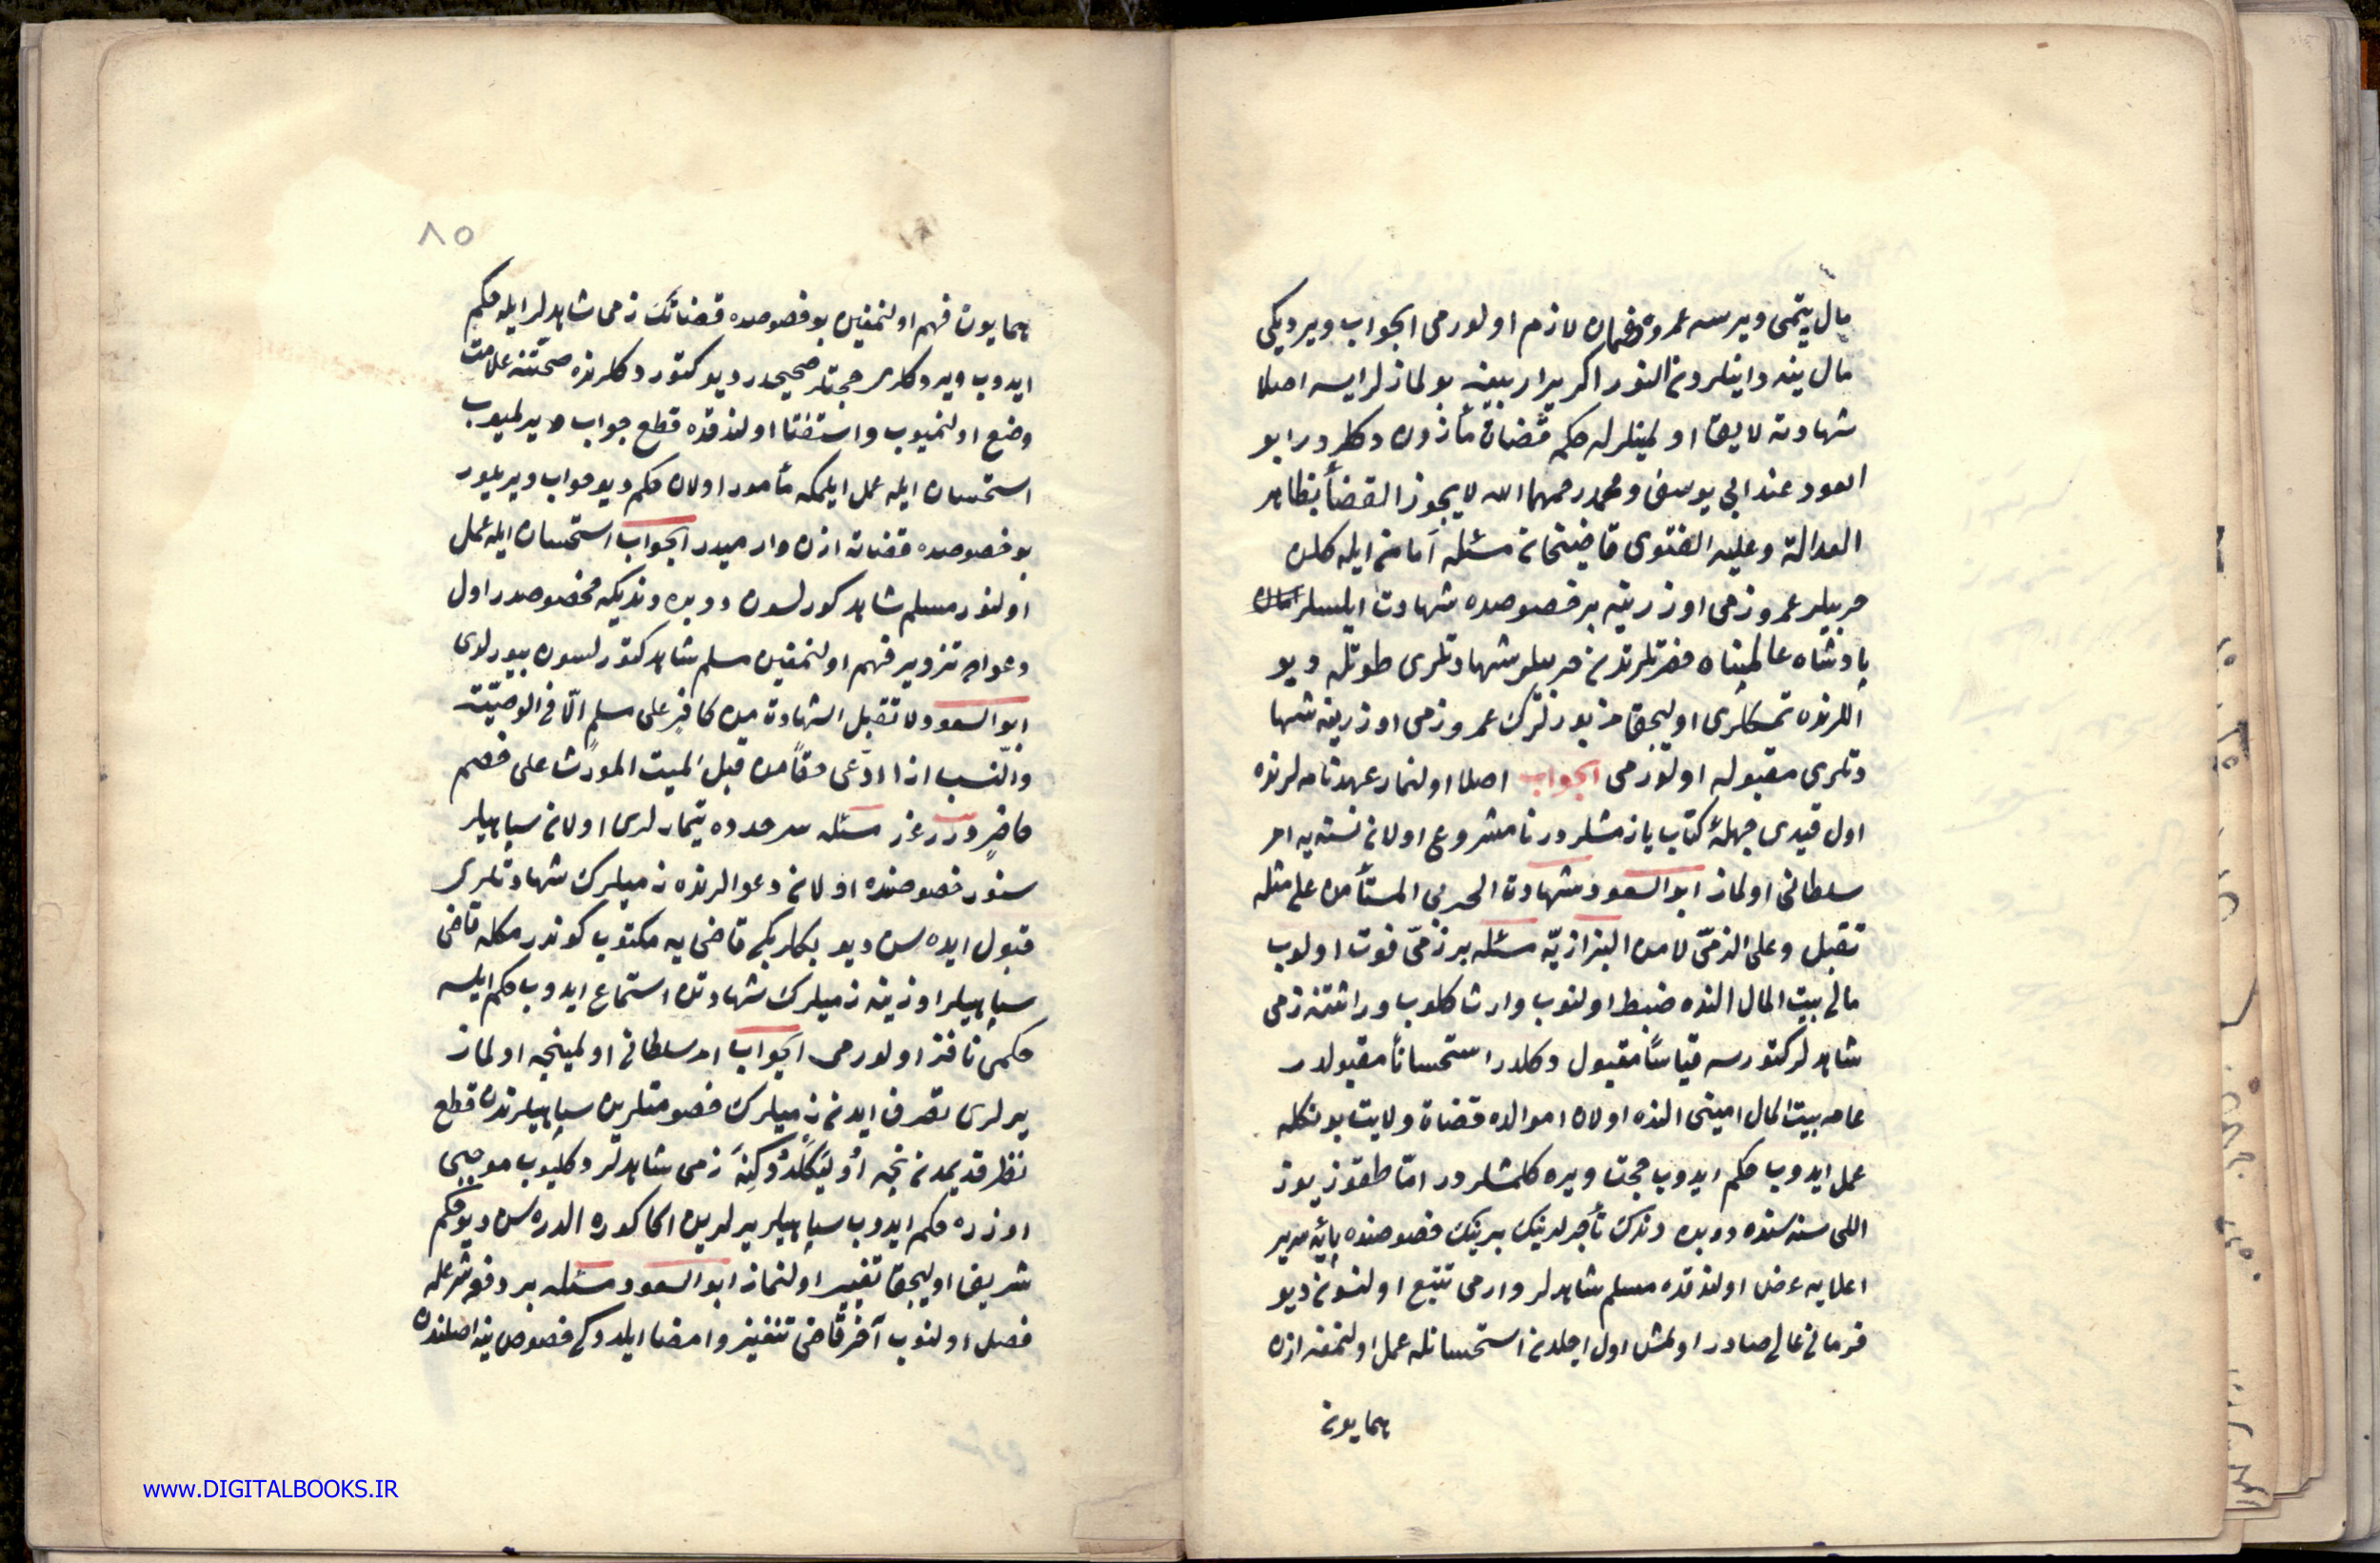 مال یتمی ویرسه عمروه ضمان لازم اولورمی الجواب ویردیکی
مال ینه داینلردن النور اکر یرار بینه بولمازلرایسه اصلا
شهادته لایق اولمینلرله حکمه قضاة مأذون دکلردر ابو
السعود عند ابی یوسف ومحمد رحمهما الله لا یجوز القضأ بظاهر
العدالة وعلیه الفتوی قاضیخان مسئله امان ایله کلن
حربیلر عمرو ذمی اوزرینه بر خصوصده شهادت ایلسلر
پادشاه عالمپناه حضرتلرندن حربیلر شهادتلری طوتله دیو
اللرنده تمسکلری اولیجق مزبورلرک عمرو ذمی اوزرینه شها
دتلری مقبوله اولورمی الجواب اصلا اولنماز عهدنامه لرنده
اول قیدی جهلۀ کتاب یازمشلردر نامشروع اولان نسنه یه امر
سلطانی اولماز ابو السعود شهادة الحربی المستأمن علی مثله
تقبل وعلی الذمّی لا من البزازیّه مسئله بر ذمّی فوت اولوب
مالی بیت المال النده ضبط اولنوب وارث کلوب وراثتنه ذمی
شاهدلر کتورسه قیاسًا مقبول دکلدر استحسانًا مقبولدر
عامه بیت المال امینی النده اولان اموالده قضاة ولایت بونکله
عمل ایدوب حکم ایدوب حجت ویره کلمشلردر امّا طقوز یوز
اللی سنه سنده دوبره وندک تأجرلرینک بربرینک خصوصنده پایۀ سریر
اعلایه عرض اولندقده مسلم شاهدلر وارمی تتبع اولنسون دیو
فرمان عالی صادر اولمش اول اجلدن استحسانله عمل اولنمغه اذن
همایون
٨٥
همایون فهم اولنمغین بو خصوصده قضاتک ذمی شاهدلر ایله حکم
ایدوب ویردکلری حجتلر صحیحدر دیو کتوردکلرنده صحّتنه علامت
وضع اولنمیوب واستفتا اولندقده قطع جواب ویرلمیوب
استحسان ایله عمل ایلمکه مأمور اولان حکم دیو جواب ویریلور
بو خصوصده قضاته اذن وارمیدر الجواب استحسان ایله عمل
اولنور مسلم شاهد کورلسون دوبره وندیکه مخصوصدر اول
دعواده تزویر فهم اولنمغین مسلم شاهد کتورلسون بیورلدی
ابو السعود ولا تقبل الشهادة من کافر علی مسلم الّا فی الوصیّت
والنّسب اذا ادّعی حقًا من قبل المیت المورث علی خصم
حاضر درر غرر مسئله سرحدده تیمارلری اولان سپاهیلر
سنور خصوصنده اولان دعوالرنده ذمیلرک شهادتلری
قبول ایده سن دیو بکلربکی قاضی یه مکتوب کوندرمکله قاضی
سپاهیلر اوزرینه ذمیلرک شهادتن استماع ایدوب حکم ایلسه
حکمی نافذ اولورمی الجواب امر سلطانی اولمینجه اولماز
یرلری تصرف ایدن ذمیلرک خصومتلرین سپاهیلرندن قطع
نظر قدیمدن نجه اولیکلدوکنه ذمی شاهدلر دکلیوب موجبی
اوزره حکم ایدوب سپاهیلر یرلرین اکا کوره الدره سن دیو حکم
شریف اولیجق تغییر اولنماز ابو السعود مسئله بر دفعه شرعله
فصل اولنوب آخر قاضی تنفیذ وامضا ایلدوکی خصوص ینه اصلندن
www.DIGITALBOOKS.IR